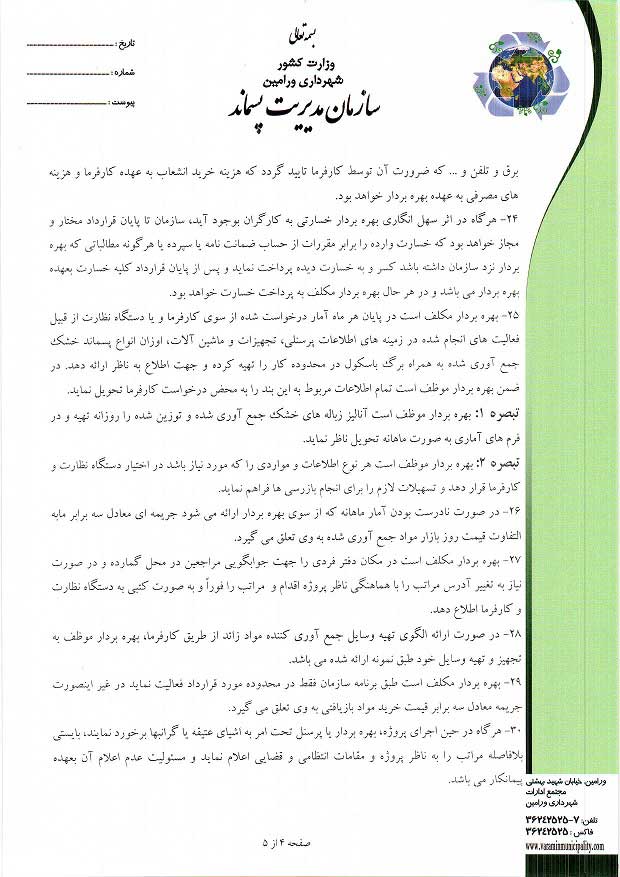 بسمه تعالی
وزارت کشور
شهرداری ورامین
سازمان مدیریت پسماند
تاریخ :
شماره :
پیوست :
برق و تلفن و ... که ضرورت آن توسط کارفرما تایید گردد که هزینه خرید انشعاب به عهده کارفرما و هزینه
های مصرفی به عهده بهره بردار خواهد بود.
۲۴- هرگاه در اثر سهل انگاری بهره بردار خسارتی به کارگران بوجود آید، سازمان تا پایان قرارداد مختار و
مجاز خواهد بود که خسارت وارده را برابر مقررات از حساب ضمانت نامه یا سپرده یا هرگونه مطالباتی که بهره
بردار نزد سازمان داشته باشد کسر و به خسارت دیده پرداخت نماید و پس از پایان قرارداد کلیه خسارت بعهده
بهره بردار می باشد و در هر حال بهره بردار مکلف به پرداخت خسارت خواهد بود.
۲۵- بهره بردار مکلف است در پایان هر ماه آمار درخواست شده از سوی کارفرما و یا دستگاه نظارت از قبیل
فعالیت های انجام شده در زمینه های اطلاعات پرسنلی، تجهیزات و ماشین آلات، اوزان انواع پسماند خشک
جمع آوری شده به همراه برگ باسکول در محدوده کار را تهیه کرده و جهت اطلاع به ناظر ارائه دهد. در
ضمن بهره بردار موظف است تمام اطلاعات مربوط به این بند را به محض درخواست کارفرما تحویل نماید.
تبصره ۱: بهره بردار موظف است آنالیز زباله های خشک جمع آوری شده و توزین شده را روزانه تهیه و در
فرم های آماری به صورت ماهانه تحویل ناظر نماید.
تبصره ۲: بهره بردار موظف است هر نوع اطلاعات و مواردی را که مورد نیاز باشد در اختیار دستگاه نظارت و
کارفرما قرار دهد و تسهیلات لازم را برای انجام بازرسی ها فراهم نماید.
۲۶- در صورت نادرست بودن آمار ماهانه که از سوی بهره بردار ارائه می شود جریمه ای معادل سه برابر مابه
التفاوت قیمت روز بازار مواد جمع آوری شده به وی تعلق می گیرد.
۲۷- بهره بردار مکلف است در مکان دفتر فردی را جهت جوابگویی مراجعین در محل گمارده و در صورت
نیاز به تغییر آدرس مراتب را با هماهنگی ناظر پروژه اقدام و مراتب را فوراً و به صورت کتبی به دستگاه نظارت
و کارفرما اطلاع دهد.
۲۸- در صورت ارائه الگوی تهیه وسایل جمع آوری کننده مواد زائد از طریق کارفرما، بهره بردار موظف به
تجهیز و تهیه وسایل خود طبق نمونه ارائه شده می باشد.
۲۹- بهره بردار مکلف است طبق برنامه سازمان فقط در محدوده مورد قرارداد فعالیت نماید در غیر اینصورت
جریمه معادل سه برابر قیمت خرید مواد بازیافتی به وی تعلق می گیرد.
۳۰- هرگاه در حین اجرای پروژه، بهره بردار یا پرسنل تحت امر به اشیای عتیقه یا گرانبها برخورد نمایند، بایستی
بلافاصله مراتب را به ناظر پروژه و مقامات انتظامی و قضایی اعلام نماید و مسئولیت عدم اعلام آن بعهده
پیمانکار می باشد.
صفحه ۴ از ۵
ورامین، خیابان شهید بهشتی
مجتمع ادارات
شهرداری ورامین
تلفن: ۷-۳۶۲۴۲۵۲۵
فاکس : ۳۶۲۴۲۵۲۵
www.varaminmunicipality.com